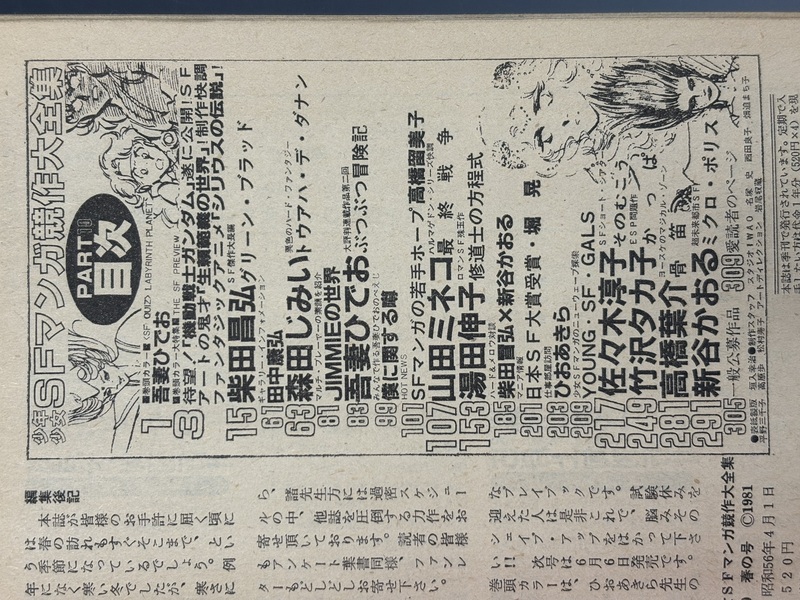 少年少女SFマンガ競作大全集
PART 10
目次
1 ■巻頭カラー■〈SF QUIZ〉LABYRINTH PLANET
吾妻ひでお
3 ■巻頭カラー大特集■THE SF PREVIEW
待望!「機動戦士ガンダム」遂に公開!SF
アートの鬼才「生頼範義の世界」!制作快調
ファンタジックアニメ「シリウスの伝説」!
15 SF傑作大長編
柴田昌弘 グリーン・ブラッド
61 ギャラリー・インフォメーション
田中康弘
63 異色のハード・ファンタジー
森田じみい トゥアハ・デ・ダナン
81 マルチ・プレーヤーの素顔を紹介
JIMMIEの世界
83 大野有連載作品第二回
吾妻ひでお ぶつぶつ冒険記
93 みんなで作る吾妻ひでおのぺえじ
僕に関する噂
101 HOT NEWS
SFマンガの若手ホープ高橋留美子
107 ハルマゲドン・シリーズ快調
山田ミネコ 最終戦争
153 ロマンSF珠玉作
湯田伸子 修道士の方程式
185 ハード&メロウ対談
柴田昌弘×新谷かおる
201 マニア情報
日本SF大賞受賞・堀 晃
203 仕事部屋訪問
ひおあきら
209 少女SFマンガのニューウェーブ特集
YOUNG・SF・GALS
217 SFショート・シアター
佐々木淳子 そのむこう
249 ESP問題作
竹沢タカ子 かっぱ
281 ヨースケのマジカル・ゾーン
高橋葉介 骨笛
291 超未来都市SF
新谷かおる ミクロ・ポリス
305 一般公募作品 309 愛読者のページ
●表紙製版 垣入幸治●制作スタッフ スタジオIWAO 名塚 史 西田良子 畑迫まち子
平野三千子 高原歩 松村康子 アートディレクション 岩尾収蔵
本誌は季刊で発行されています。定期で入
編集後記
本誌が皆様のお手許に届く頃に
は春の訪れもすぐそこまで、とい
う季節になっているでしょう。例
年になく寒い冬でしたが、寒さに
ら、諸先生方には過密スケジュー
ルの中、他誌を圧倒する力作をお
寄せ頂いております。読者の皆様
もアンケート葉書同様、ファンレ
ターもどしどしお寄せ下さい。
なプレイブックです。試験休みを
迎えた人は是非これで、脳みその
シェイプ・アップをはかって下さ
い!! 次号は6月6日発売です。
巻頭カラーは、ひおあきら先生の
SFマンガ競作大全集
春の号 ©1981
昭和56年4月1日
520円